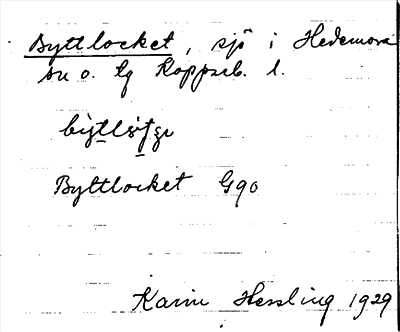 Byttlocket, sjö i Hedemora
sn o. tg Kopparb. l.
Byttlocket G90
Karin Hessling 1929